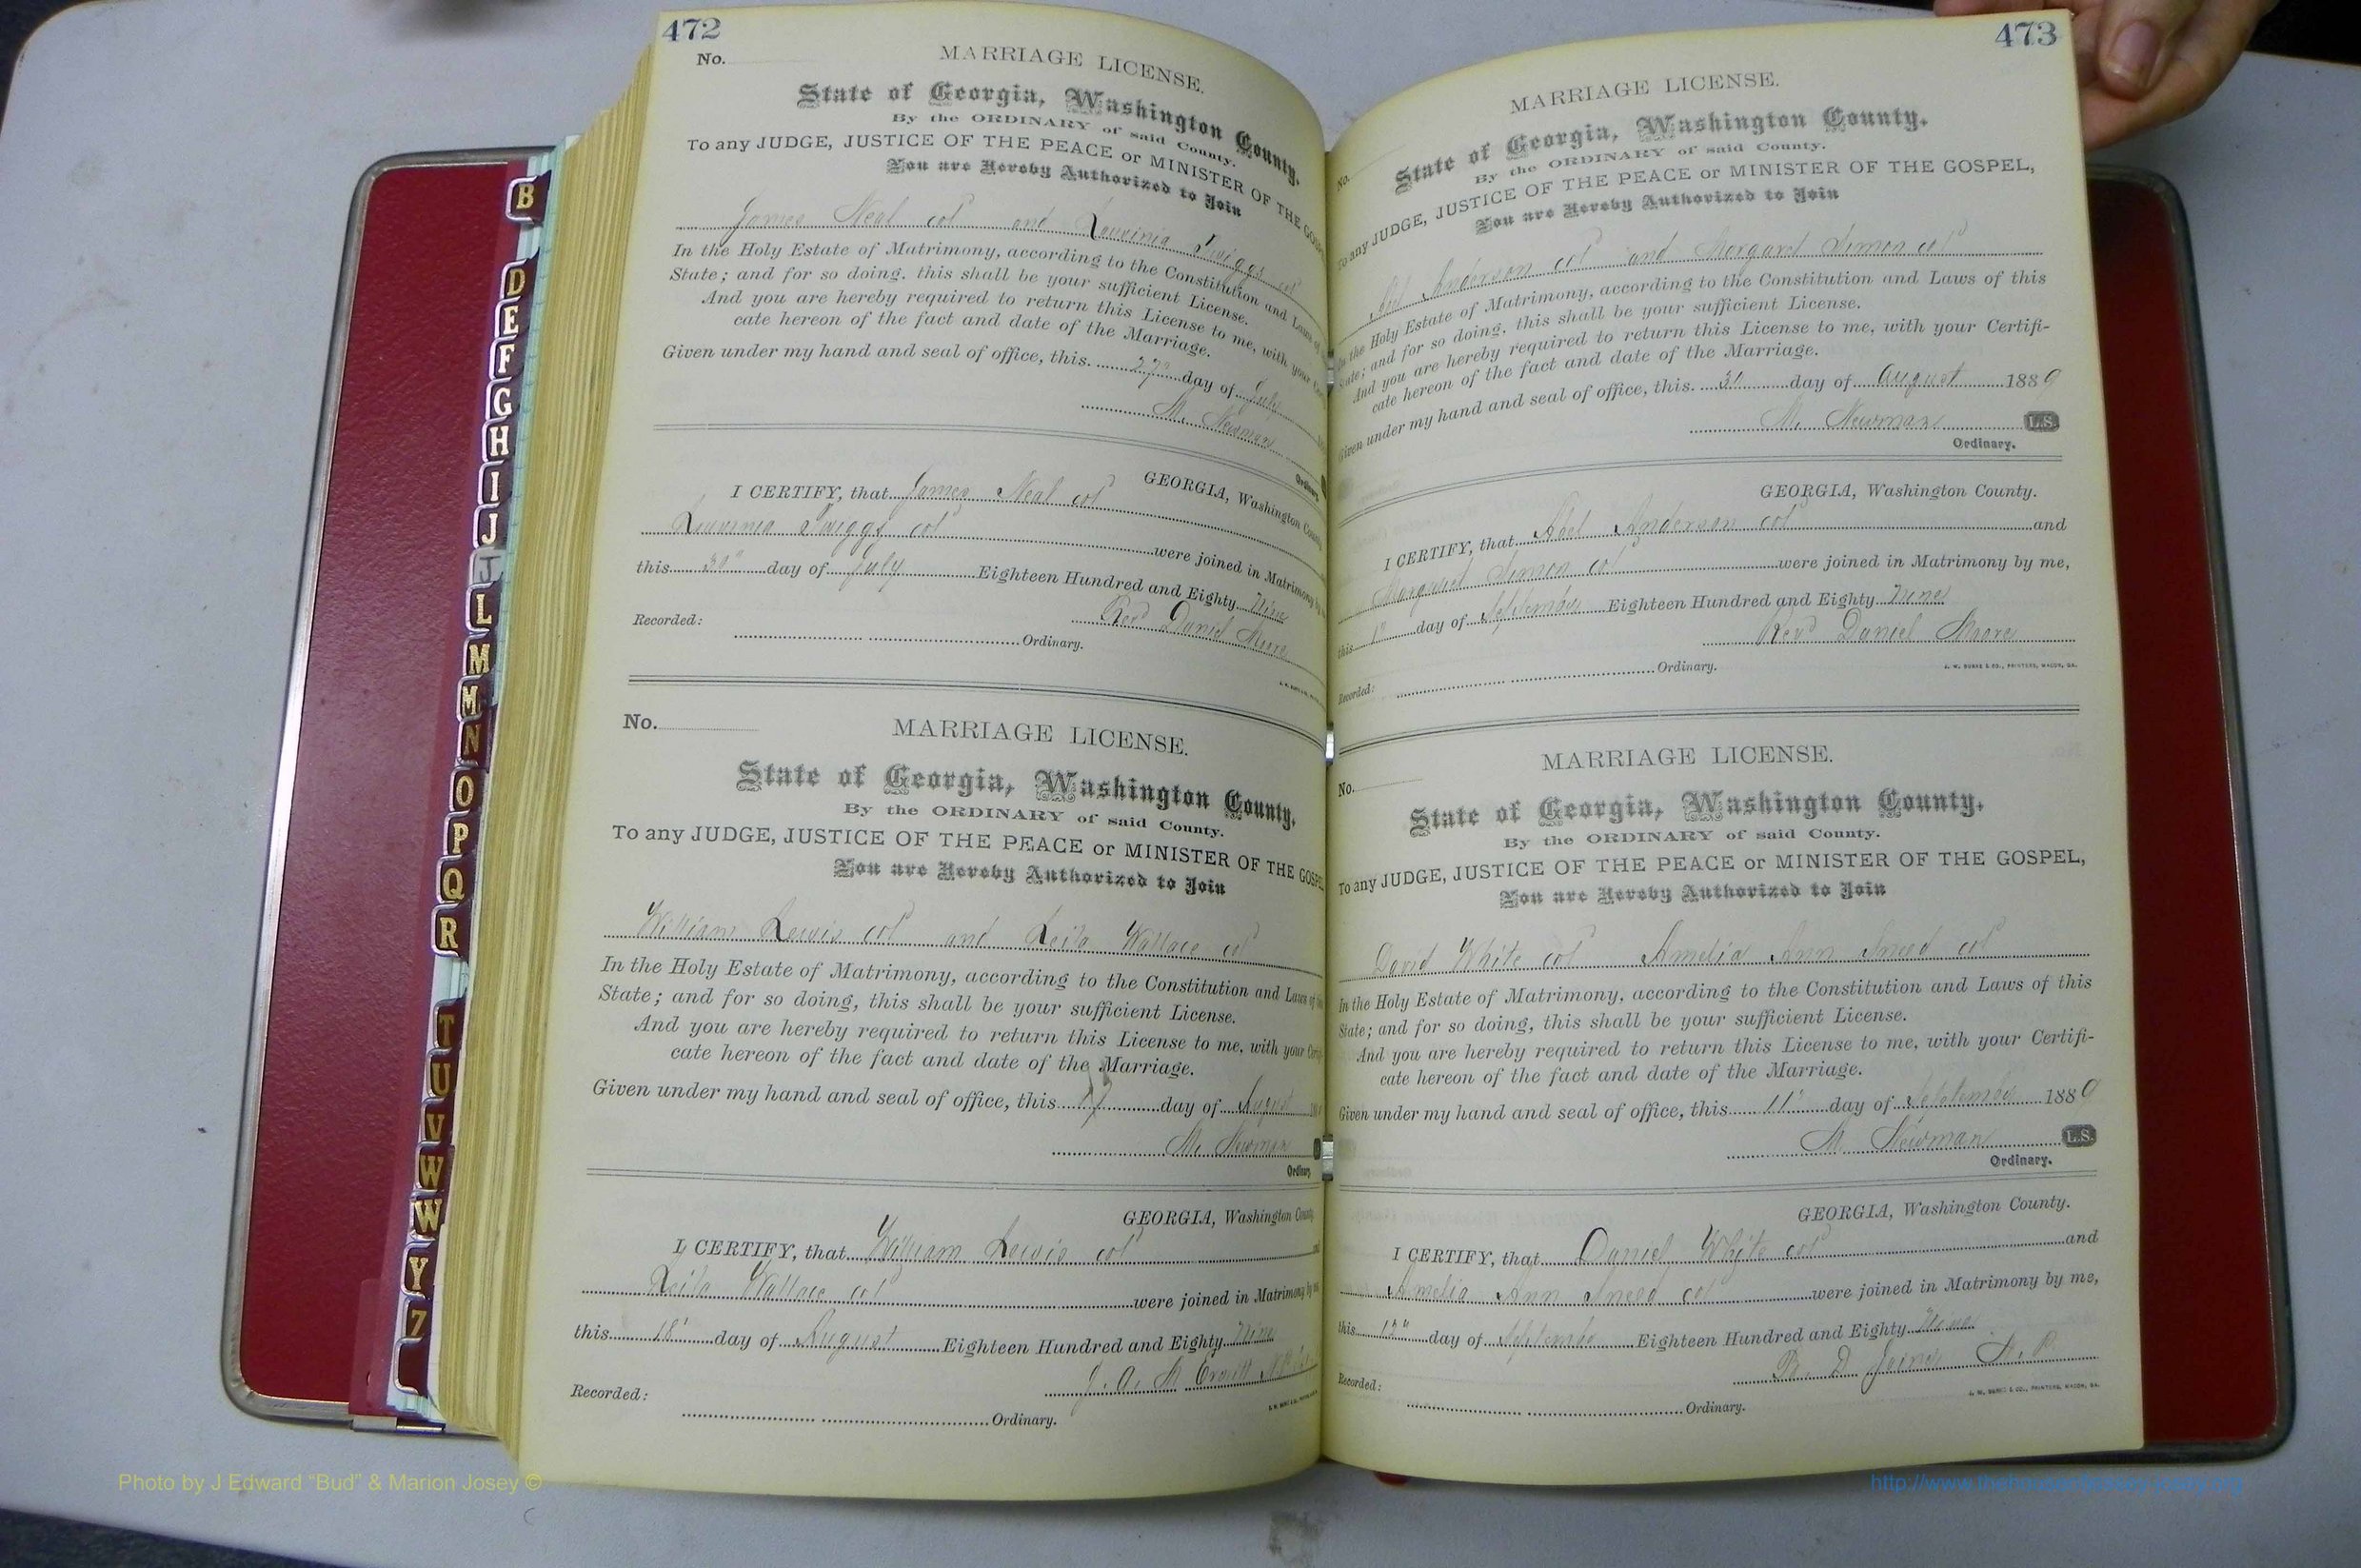 472
No.
MARRIAGE LICENSE.
State of Georgia, Washington County.
By the ORDINARY of said County.
To any JUDGE, JUSTICE OF THE PEACE or MINISTER OF THE GOSP
You are Hereby Authorized to Join
James Neal col and Louvinia Twiggs col
In the Holy Estate of Matrimony, according to the Constitution and Laws of
State; and for so doing, this shall be your sufficient License.
And you are hereby required to return this License to me, with your
cate hereon of the fact and date of the Marriage.
Given under my hand and seal of office, this 27" day of July
M. Newman
Ordinary.
GEORGIA, Washington County
I CERTIFY, that James Neal col
Louvinia Twiggs col were joined in Matrimony
this 30" day of July Eighteen Hundred and Eighty Nine
Revd Daniel Moore
Recorded: Ordinary.
No.
MARRIAGE LICENSE.
State of Georgia, Washington County.
By the ORDINARY of said County.
To any JUDGE, JUSTICE OF THE PEACE or MINISTER OF THE GOSPE
You are Hereby Authorized to Join
William Lewis col and Leila Wallace col
In the Holy Estate of Matrimony, according to the Constitution and Laws of
State; and for so doing, this shall be your sufficient License.
And you are hereby required to return this License to me, with your
cate hereon of the fact and date of the Marriage.
Given under my hand and seal of office, this 17 day of August
M. Newman
Ordinary
GEORGIA, Washington
I CERTIFY, that William Lewis col
Leila Wallace col were joined in Matrimony by
this 18" day of August Eighteen Hundred and Eighty Nine
Recorded: Ordinary.
473
MARRIAGE LICENSE.
No.
State of Georgia, Washington County.
By the ORDINARY of said County.
To any JUDGE, JUSTICE OF THE PEACE or MINISTER OF THE GOSPEL,
You are Hereby Authorized to Join
Anderson col and Margaret Simon col
In the Holy Estate of Matrimony, according to the Constitution and Laws of this
State; and for so doing, this shall be your sufficient License.
And you are hereby required to return this License to me, with your Certifi-
cate hereon of the fact and date of the Marriage.
Given under my hand and seal of office, this day of August 1889
M. Newman L.S.
Ordinary.
GEORGIA, Washington County.
I CERTIFY, that Abel Anderson col and
Margaret Simon col were joined in Matrimony by me,
this 1" day of September Eighteen Hundred and Eighty Nine
Revd Daniel Moore
J. W. BURKE & CO., PRINTERS, MACON, GA.
Recorded: Ordinary.
MARRIAGE LICENSE.
No.
State of Georgia, Washington County.
By the ORDINARY of said County.
To any JUDGE, JUSTICE OF THE PEACE or MINISTER OF THE GOSPEL,
You are Hereby Authorized to Join
David White col Amelia Ann Sneed col
In the Holy Estate of Matrimony, according to the Constitution and Laws of this
State; and for so doing, this shall be your sufficient License.
And you are hereby required to return this License to me, with your Certifi-
cate hereon of the fact and date of the Marriage.
Given under my hand and seal of office, this 11" day of September 1889
M. Newman L.S.
Ordinary.
GEORGIA, Washington County.
I CERTIFY, that Daniel White col and
Amelia Ann Sneed col were joined in Matrimony by me,
this 12" day of September Eighteen Hundred and Eighty Nine
J. W. BURKE & CO., PRINTERS, MACON, GA.
Recorded: Ordinary.
B
D
E
F
G
H
I
J
J
L
M
M
N
O
P
Q
R
T
U
V
W
W
Y
Z
Photo by J Edward "Bud" & Marion Josey ©